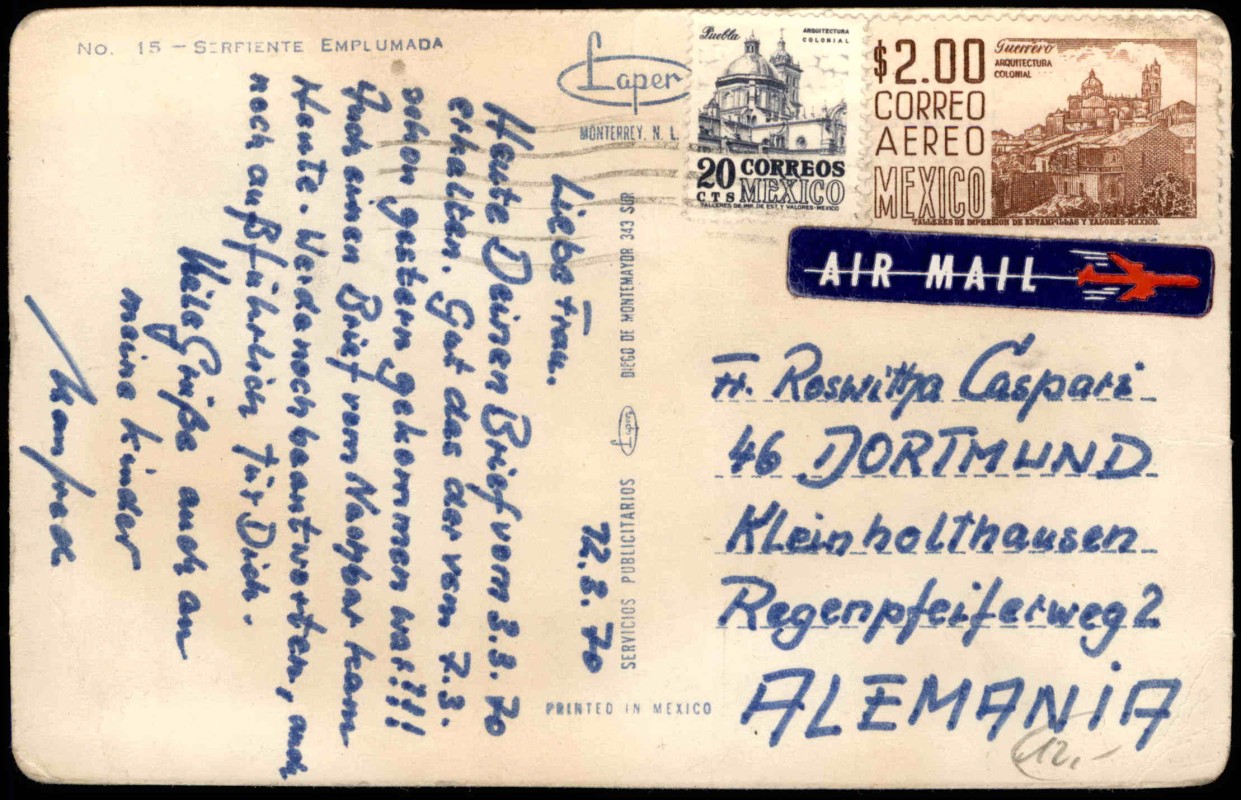 No. 15 – SERPIENTE EMPLUMADA
Laper
MONTERREY, N. L.
Puebla
ARQUITECTURA
COLONIAL
20 CTS
CORREOS
MEXICO
TALLERES DE IMP. DE EST. Y VALORES-MEXICO
$2.00
CORREO
AEREO
MEXICO
Guerrero
ARQUITECTURA
COLONIAL
TALLERES DE IMPRESION DE ESTAMPILLAS Y VALORES-MEXICO.
AIR MAIL
12.3.70
Liebe Frau.
Heute Deinen Brief vom 3.3.70
erhalten. Gut das der vom 7.3.
schon gestern gekommen war!!!!
Auch einen Brief vom Nachbar kam
Heute. Werde noch beantworten, auch
noch außführlich für Dich.
Viele Grüße auch an
meine Kinder
Manfred
SERVICIOS PUBLICITARIOS Laper DIEGO DE MONTEMAYOR 343 SUR
PRINTED IN MEXICO
Fr. Roswitha Caspari
46 DORTMUND
Kleinholthausen
Regenpfeiferweg 2
ALEMANIA
12,-